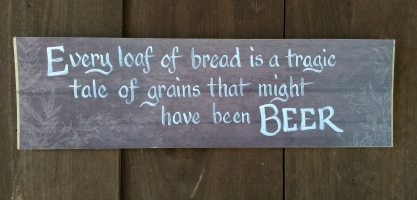 Every loaf of bread is a tragic
tale of grains that might
have been BEER